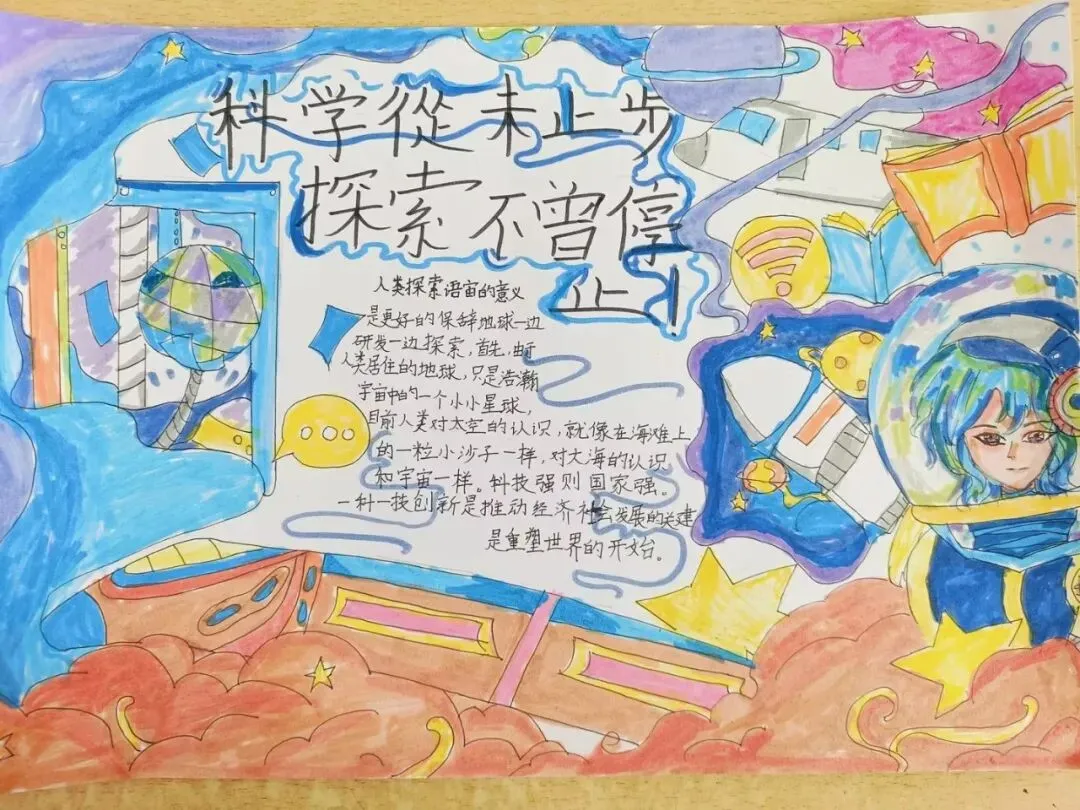 科学從未止步
探索不曾停
止!
人类探索语宙的意义
是更好的保辞地球一边
研发一边探索,首先,由于
人类居住的地球,只是浩瀚
宇宙中的一个小小星球,
目前人类对太空的认识,就像在海难上
的一粒小沙子一样,对大海的认识
和宇宙一样。科技强则国家强。
一科一技创新是推动经济社会发展的关建
是重塑世界的开始。